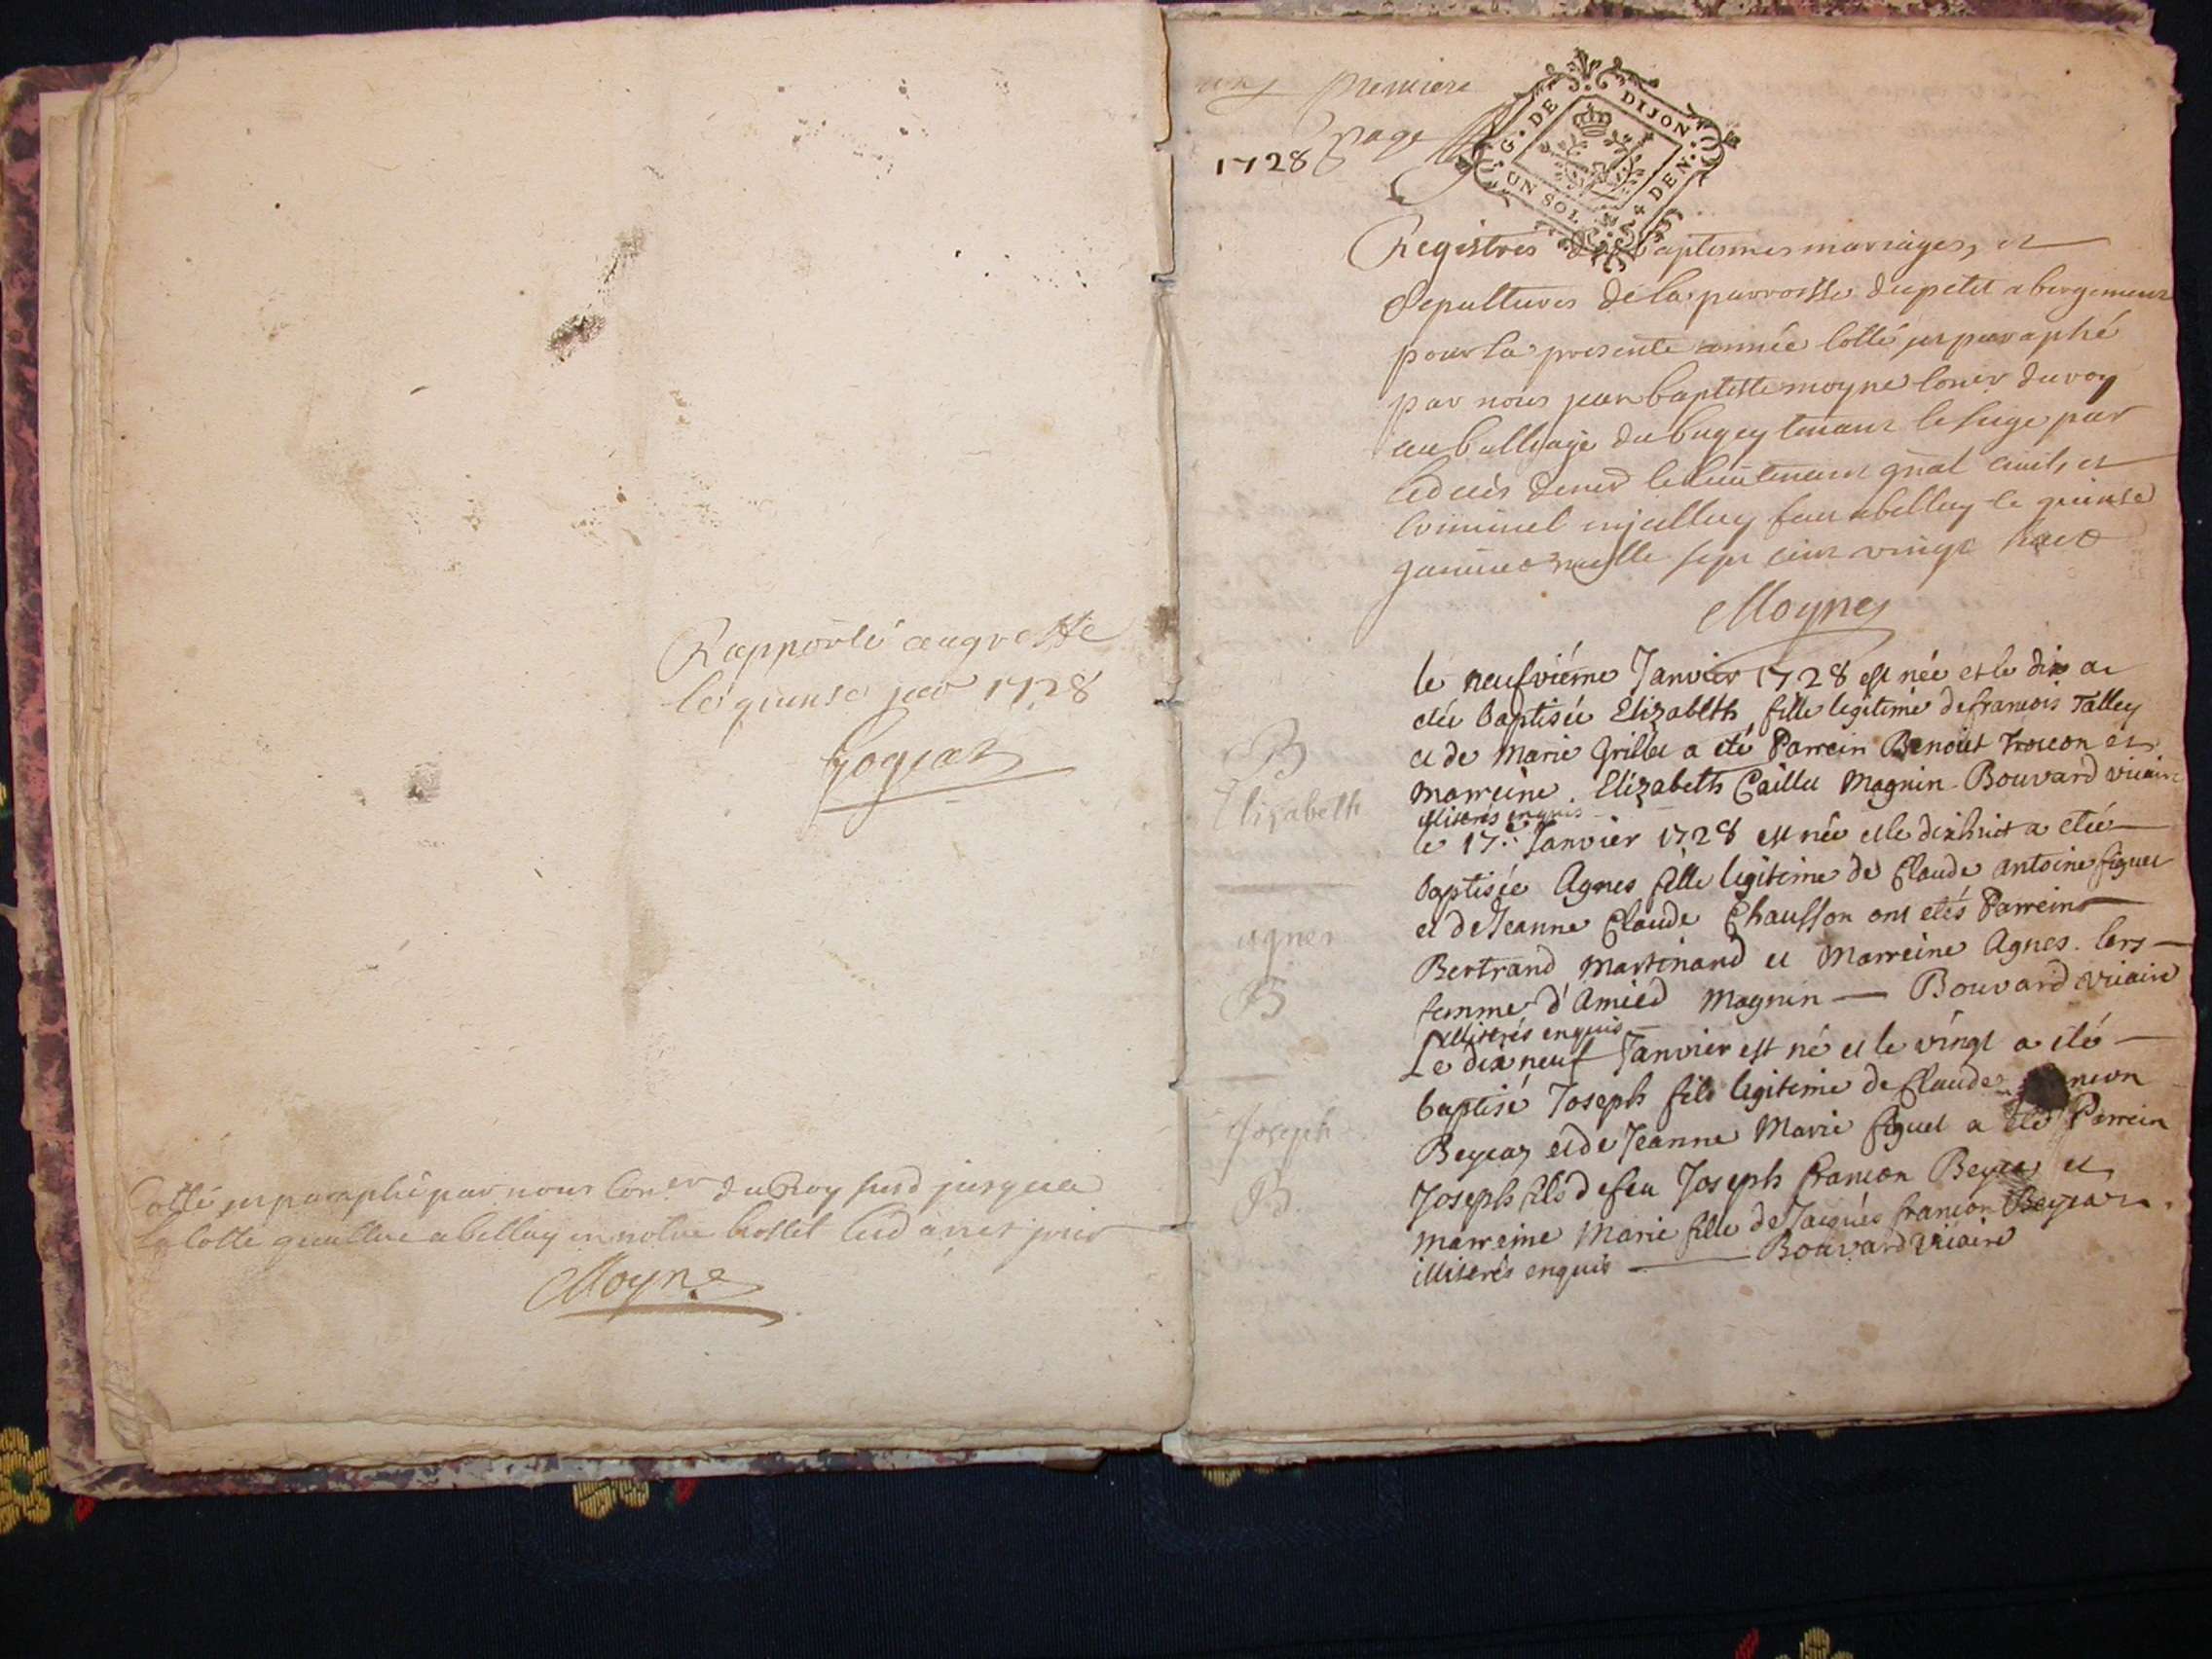 Rapporté au greffe
le quinse jer 1728
Cotté et paraphé par nous Coner du Roy susd jusqua
la cotte a bellay en notre hostel
Moyne
premiere
page
1728
G. DE DIJON
UN SOL 4 DEN.
Registres des baptesmes mariages, et
Sepultures de la parroisse du petit abergement
pour la presente année cotté et paraphé
par nous jean baptiste moyne Coner du roy
au balliage du bugey tenant le siege par
le deces de mr le lieutenant gnal civil, et
criminel fait a bellay le quinse
janvier mille sept cent vingt huit
Moyne
le neufviéme Janvier 1728 est née et le dix a
etée baptisée Elizabeth, fille legitime de francois Talley
et de Marie Grillet a eté Parrein Benoit Troccon et
B
marreine. Elizabeth Caillet Magnin Bouvard vicaire
Elisabeth
illiterés enquis
le 17e. Janvier 1728 est née et le dixhuit a etée
baptisée Agnes fille legitime de Claude antoine figuet
agnes
et de Jeanne Claude Chausson ont etés Parrein
Bertrand Martinand et Marreine Agnes. Cers
B
femme d'Amied Magnin — Bouvard vicaire
illiterés enquis
Le dix neuf Janvier est né et le vingt a eté
baptisé Joseph fils legitime de Claude
Joseph
Beyeaz et de Jeanne Marie figuet a eté Parrein
B.
Joseph fils de feu Joseph francon et
marreine Marie fille de Jacques francon Beyeaz.
illiterés enquis — Bouvard vicaire